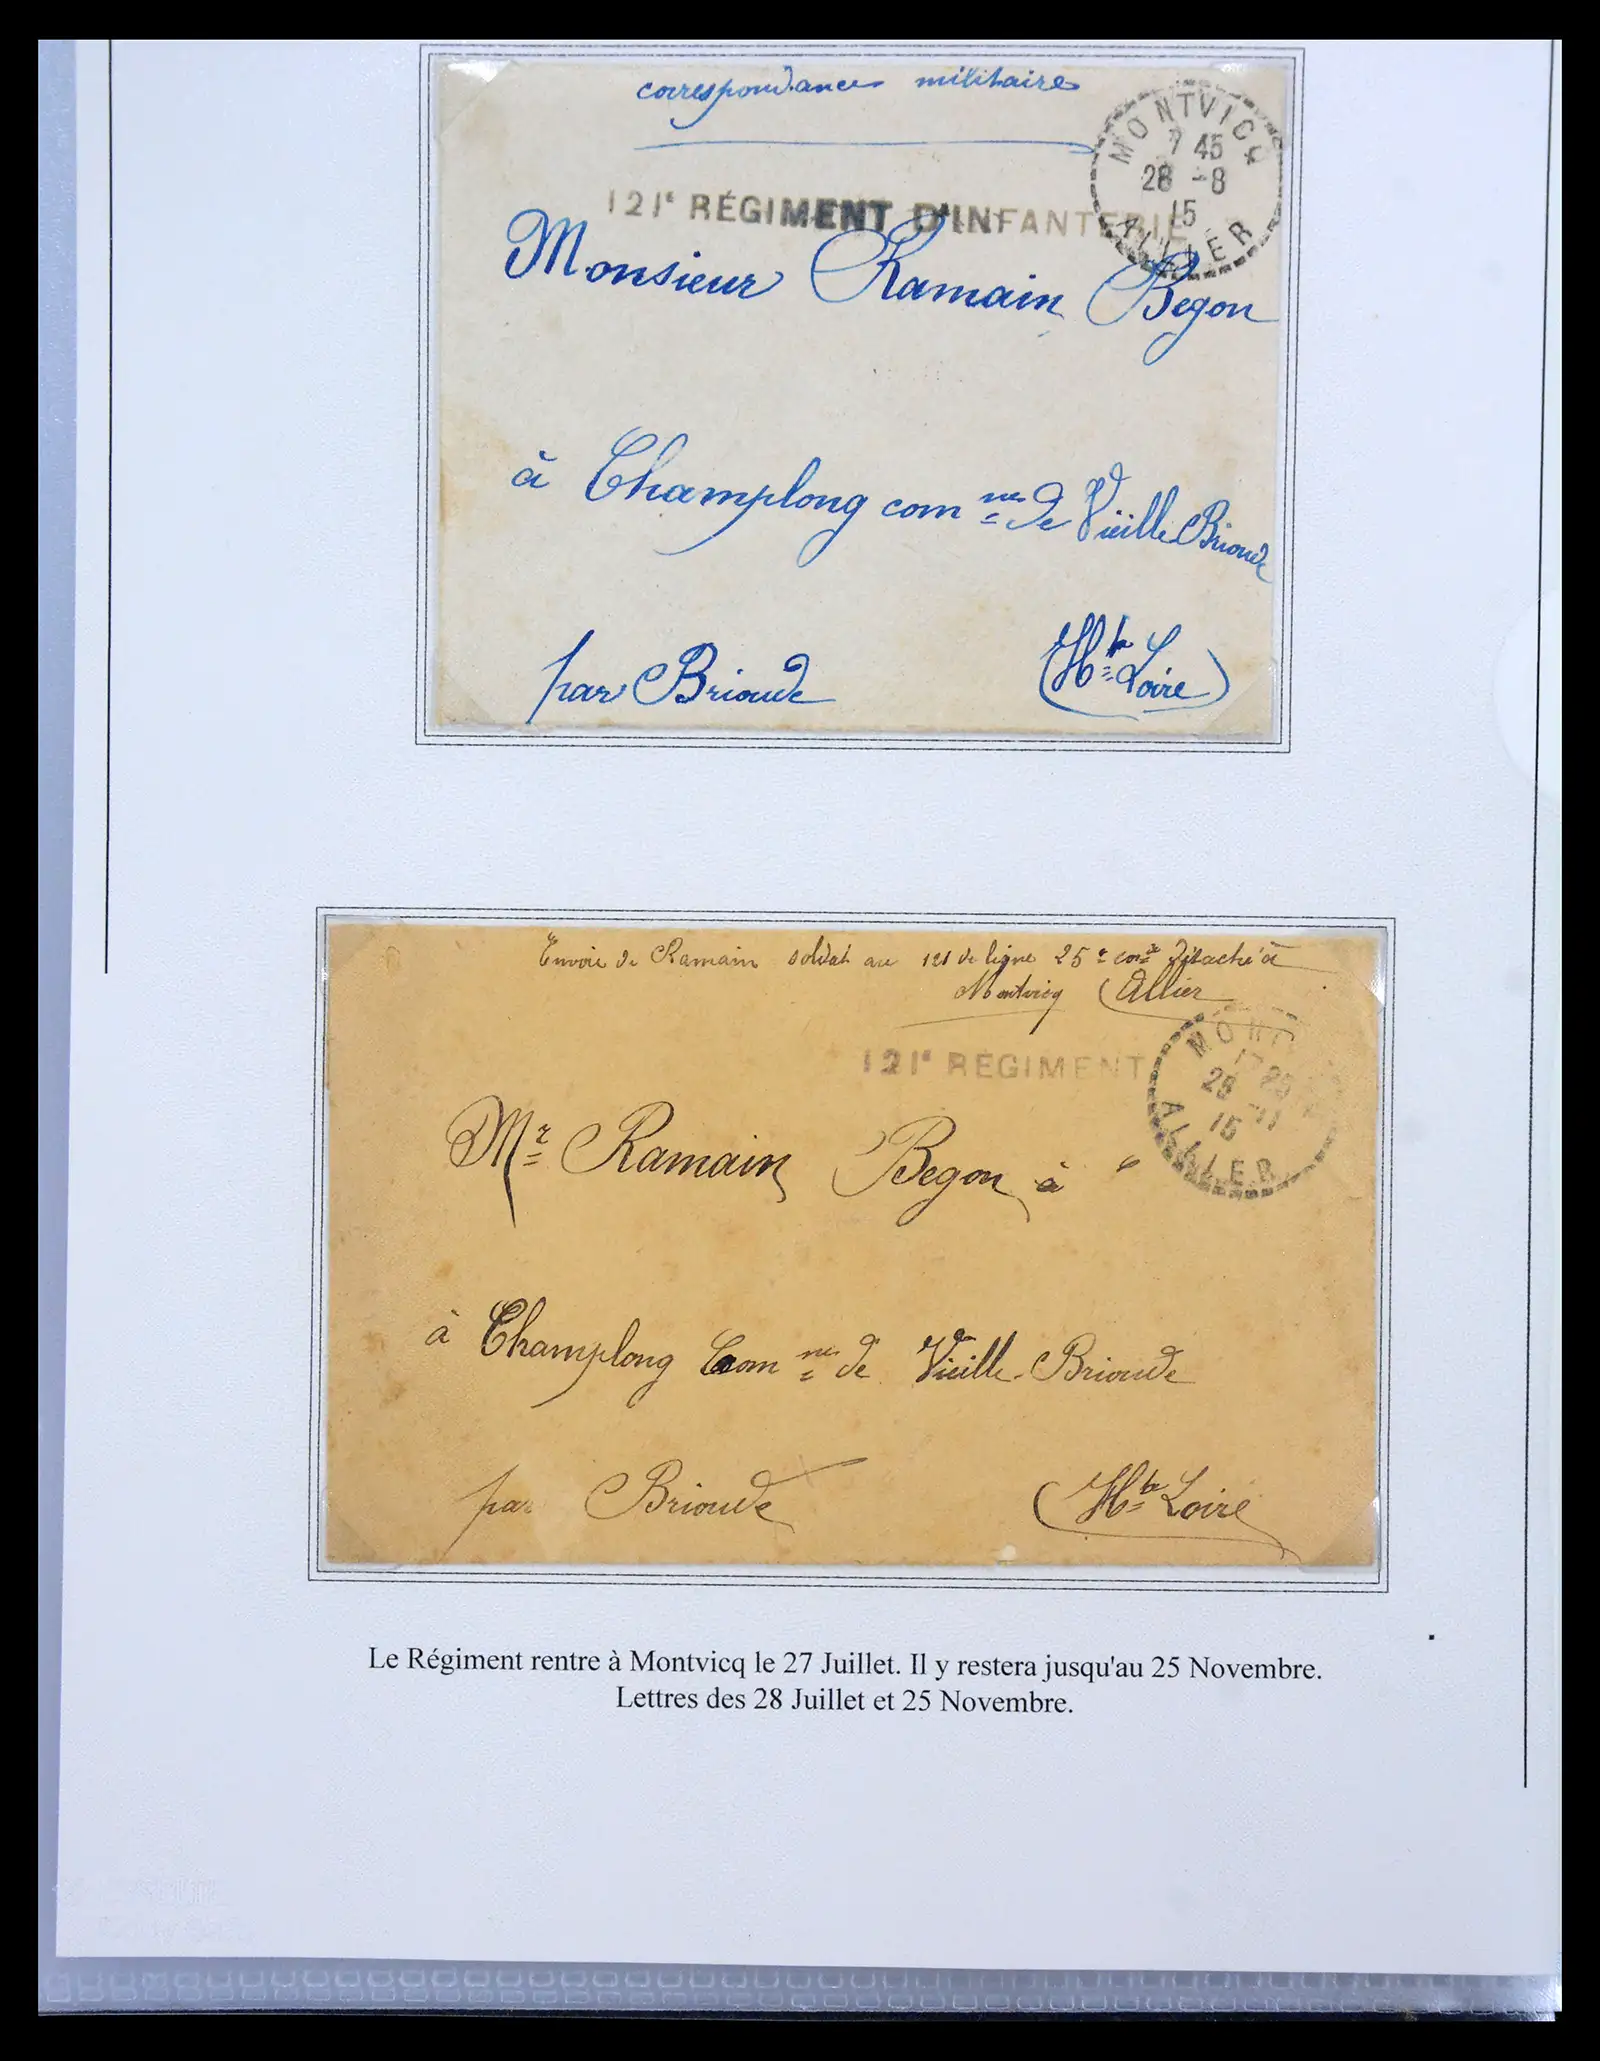 correspondance militaire
MONTVICQ
7 45
28 -8
15
ALLIER
121e RÉGIMENT D'INFANTERIE
Monsieur Ramain Begon
à Champlong com ne de Vieille Brioude
par Brioude (Hte Loire)
Envoie de Ramain soldat au 121 de ligne 25e cie détaché à
Montvicq (Allier
121e RÉGIMENT
MONT
17 25
25 -11
15
ALLIER
Mr Ramain Begon à
à Champlong Com ne de Vieille-Brioude
par Brioude (Hte Loire
Le Régiment rentre à Montvicq le 27 Juillet. Il y restera jusqu'au 25 Novembre.
Lettres des 28 Juillet et 25 Novembre.